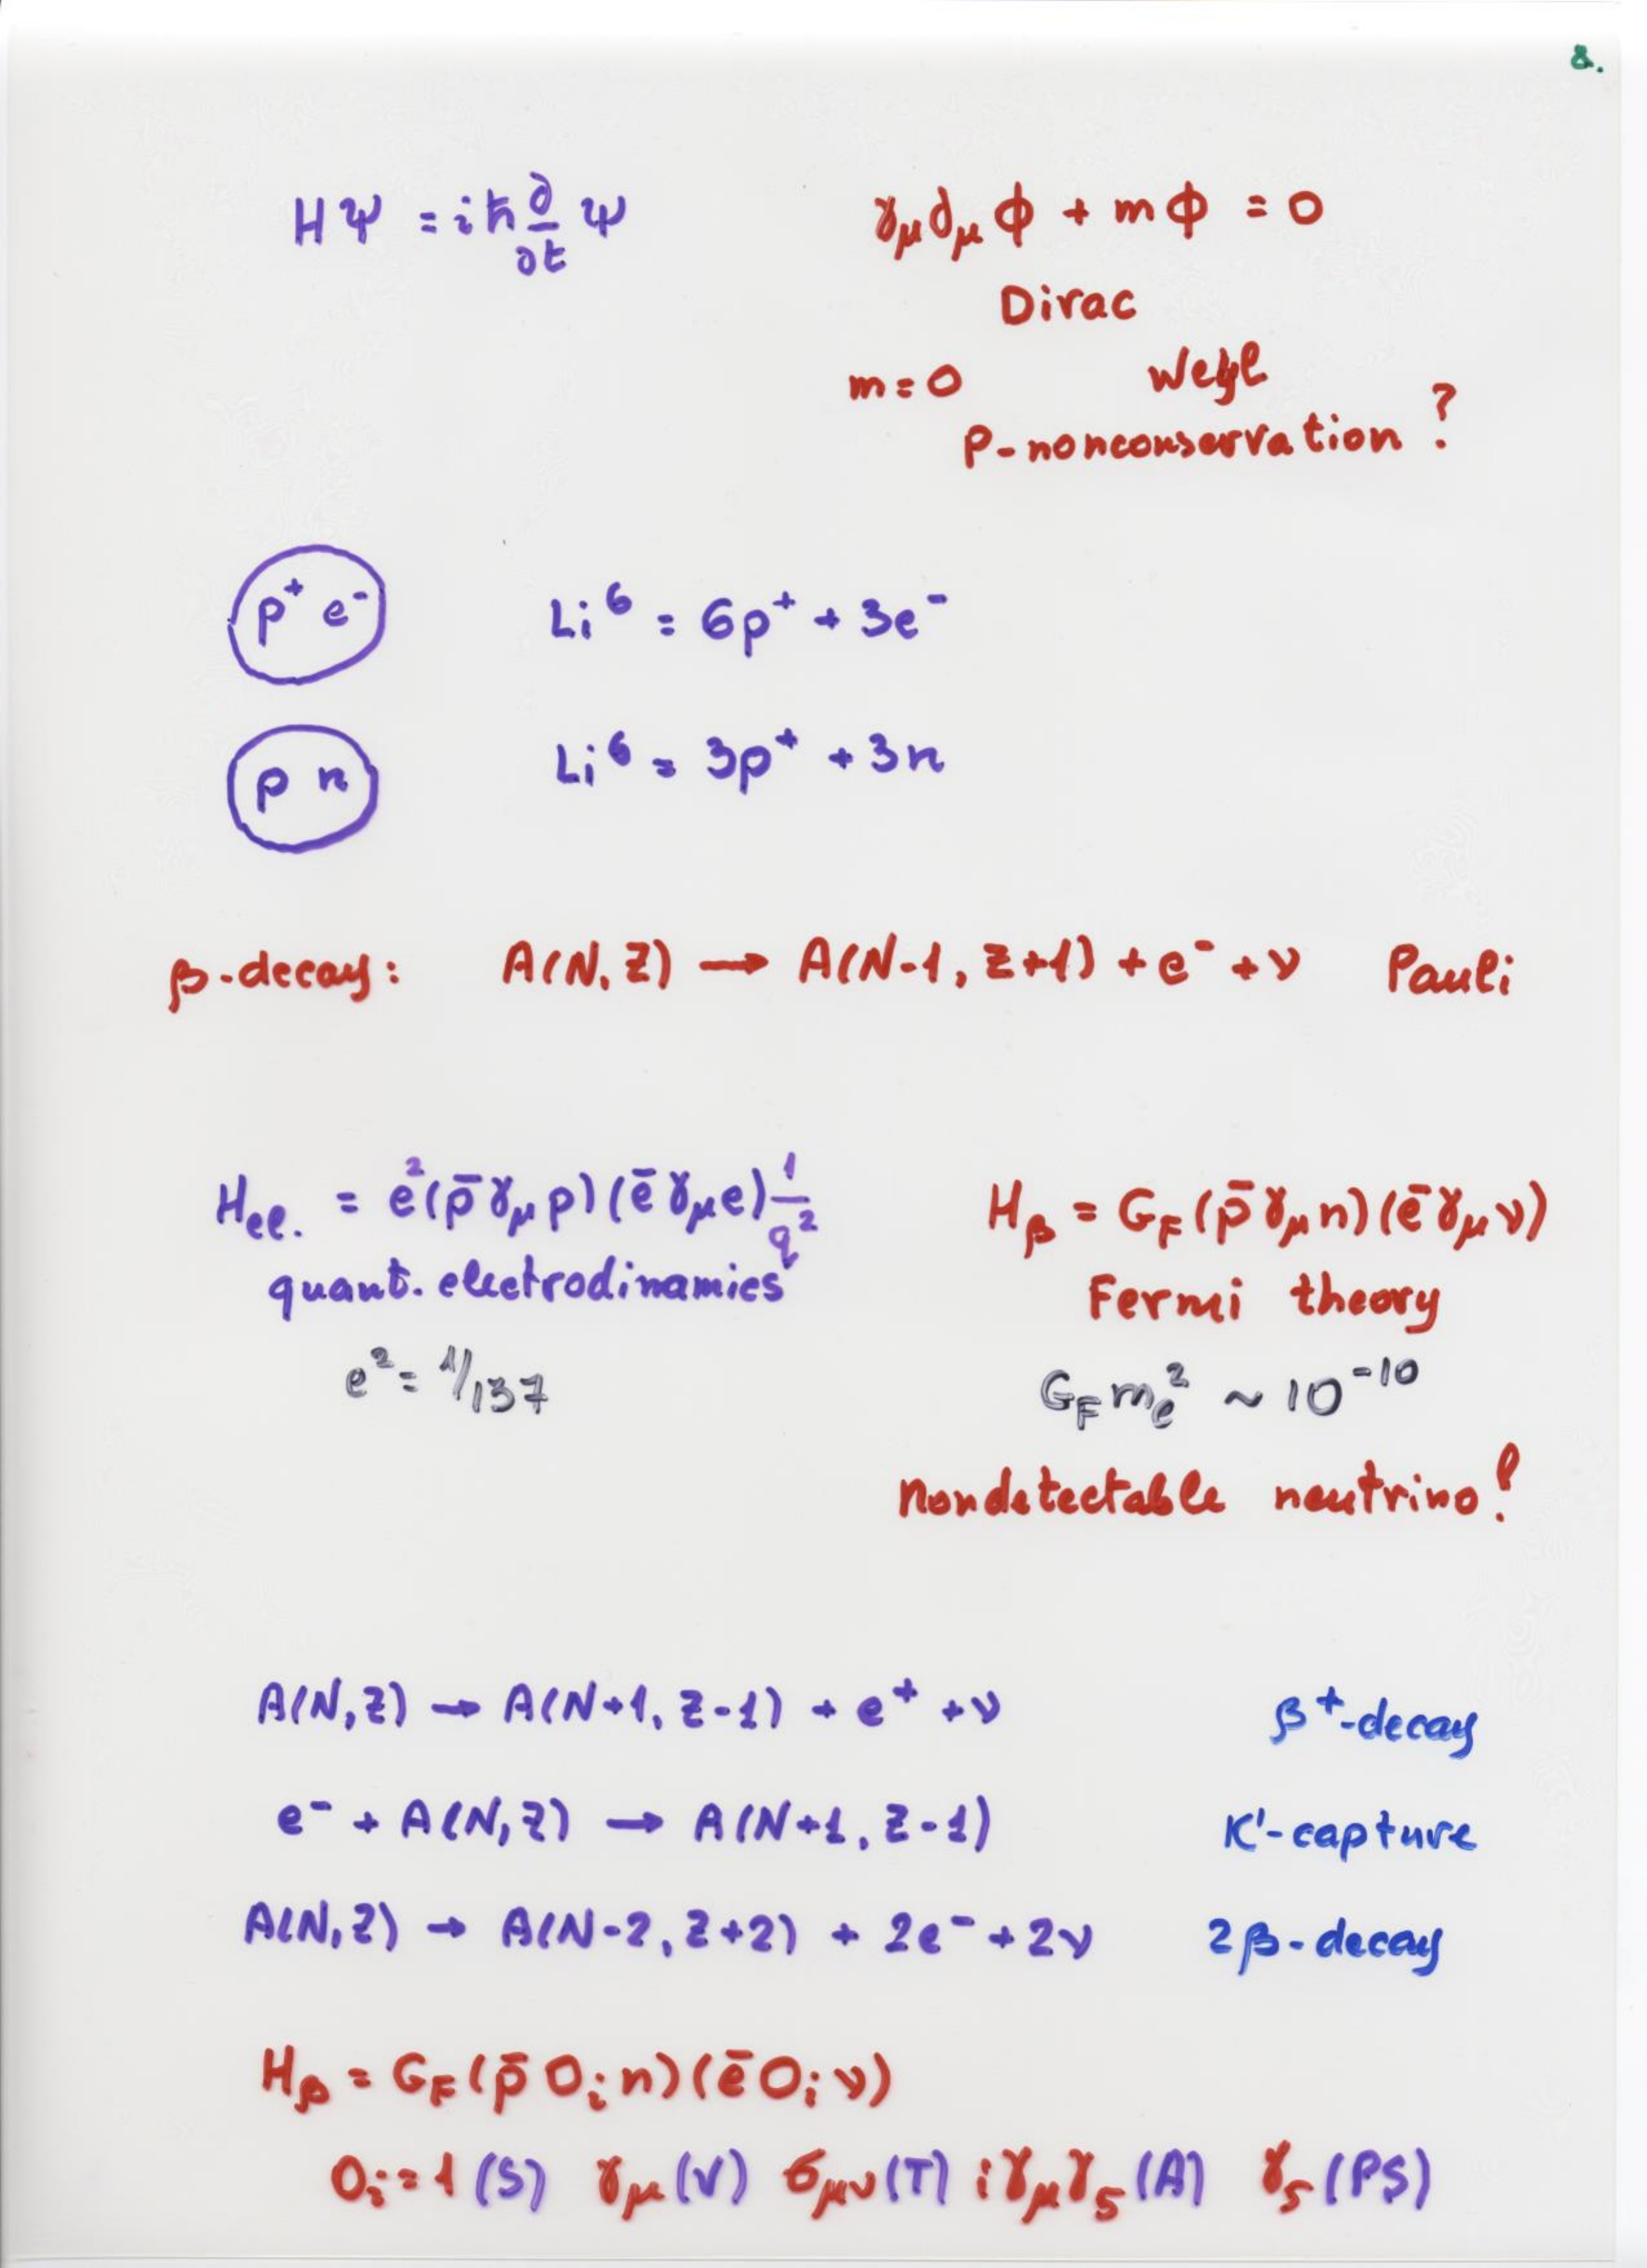 8.
HΨ = iħ ∂/∂t Ψ
γ_μ ∂_μ ϕ + mϕ = 0
Dirac
m=0 Weyl
P-nonconservation ?
p⁺ e⁻ Li⁶ = 6p⁺ + 3e⁻
p n Li⁶ = 3p⁺ + 3n
β-decay: A(N,Z) → A(N-1, Z+1) + e⁻ + ν Pauli
H_el. = e²(p̄ γ_μ p)(ē γ_μ e) 1/q²
quant. electrodinamics
e² = 1/137
H_β = G_F (p̄ γ_μ n)(ē γ_μ ν)
Fermi theory
G_F m_e² ~ 10⁻¹⁰
Nondetectable neutrino!
A(N,Z) → A(N+1, Z-1) + e⁺ + ν β⁺-decay
e⁻ + A(N,Z) → A(N+1, Z-1) K'-capture
A(N,Z) → A(N-2, Z+2) + 2e⁻ + 2ν 2β-decay
H_β = G_F (p̄ O_i n)(ē O_i ν)
O_i = 1 (S) γ_μ (V) σ_μν (T) iγ_μ γ_5 (A) γ_5 (PS)